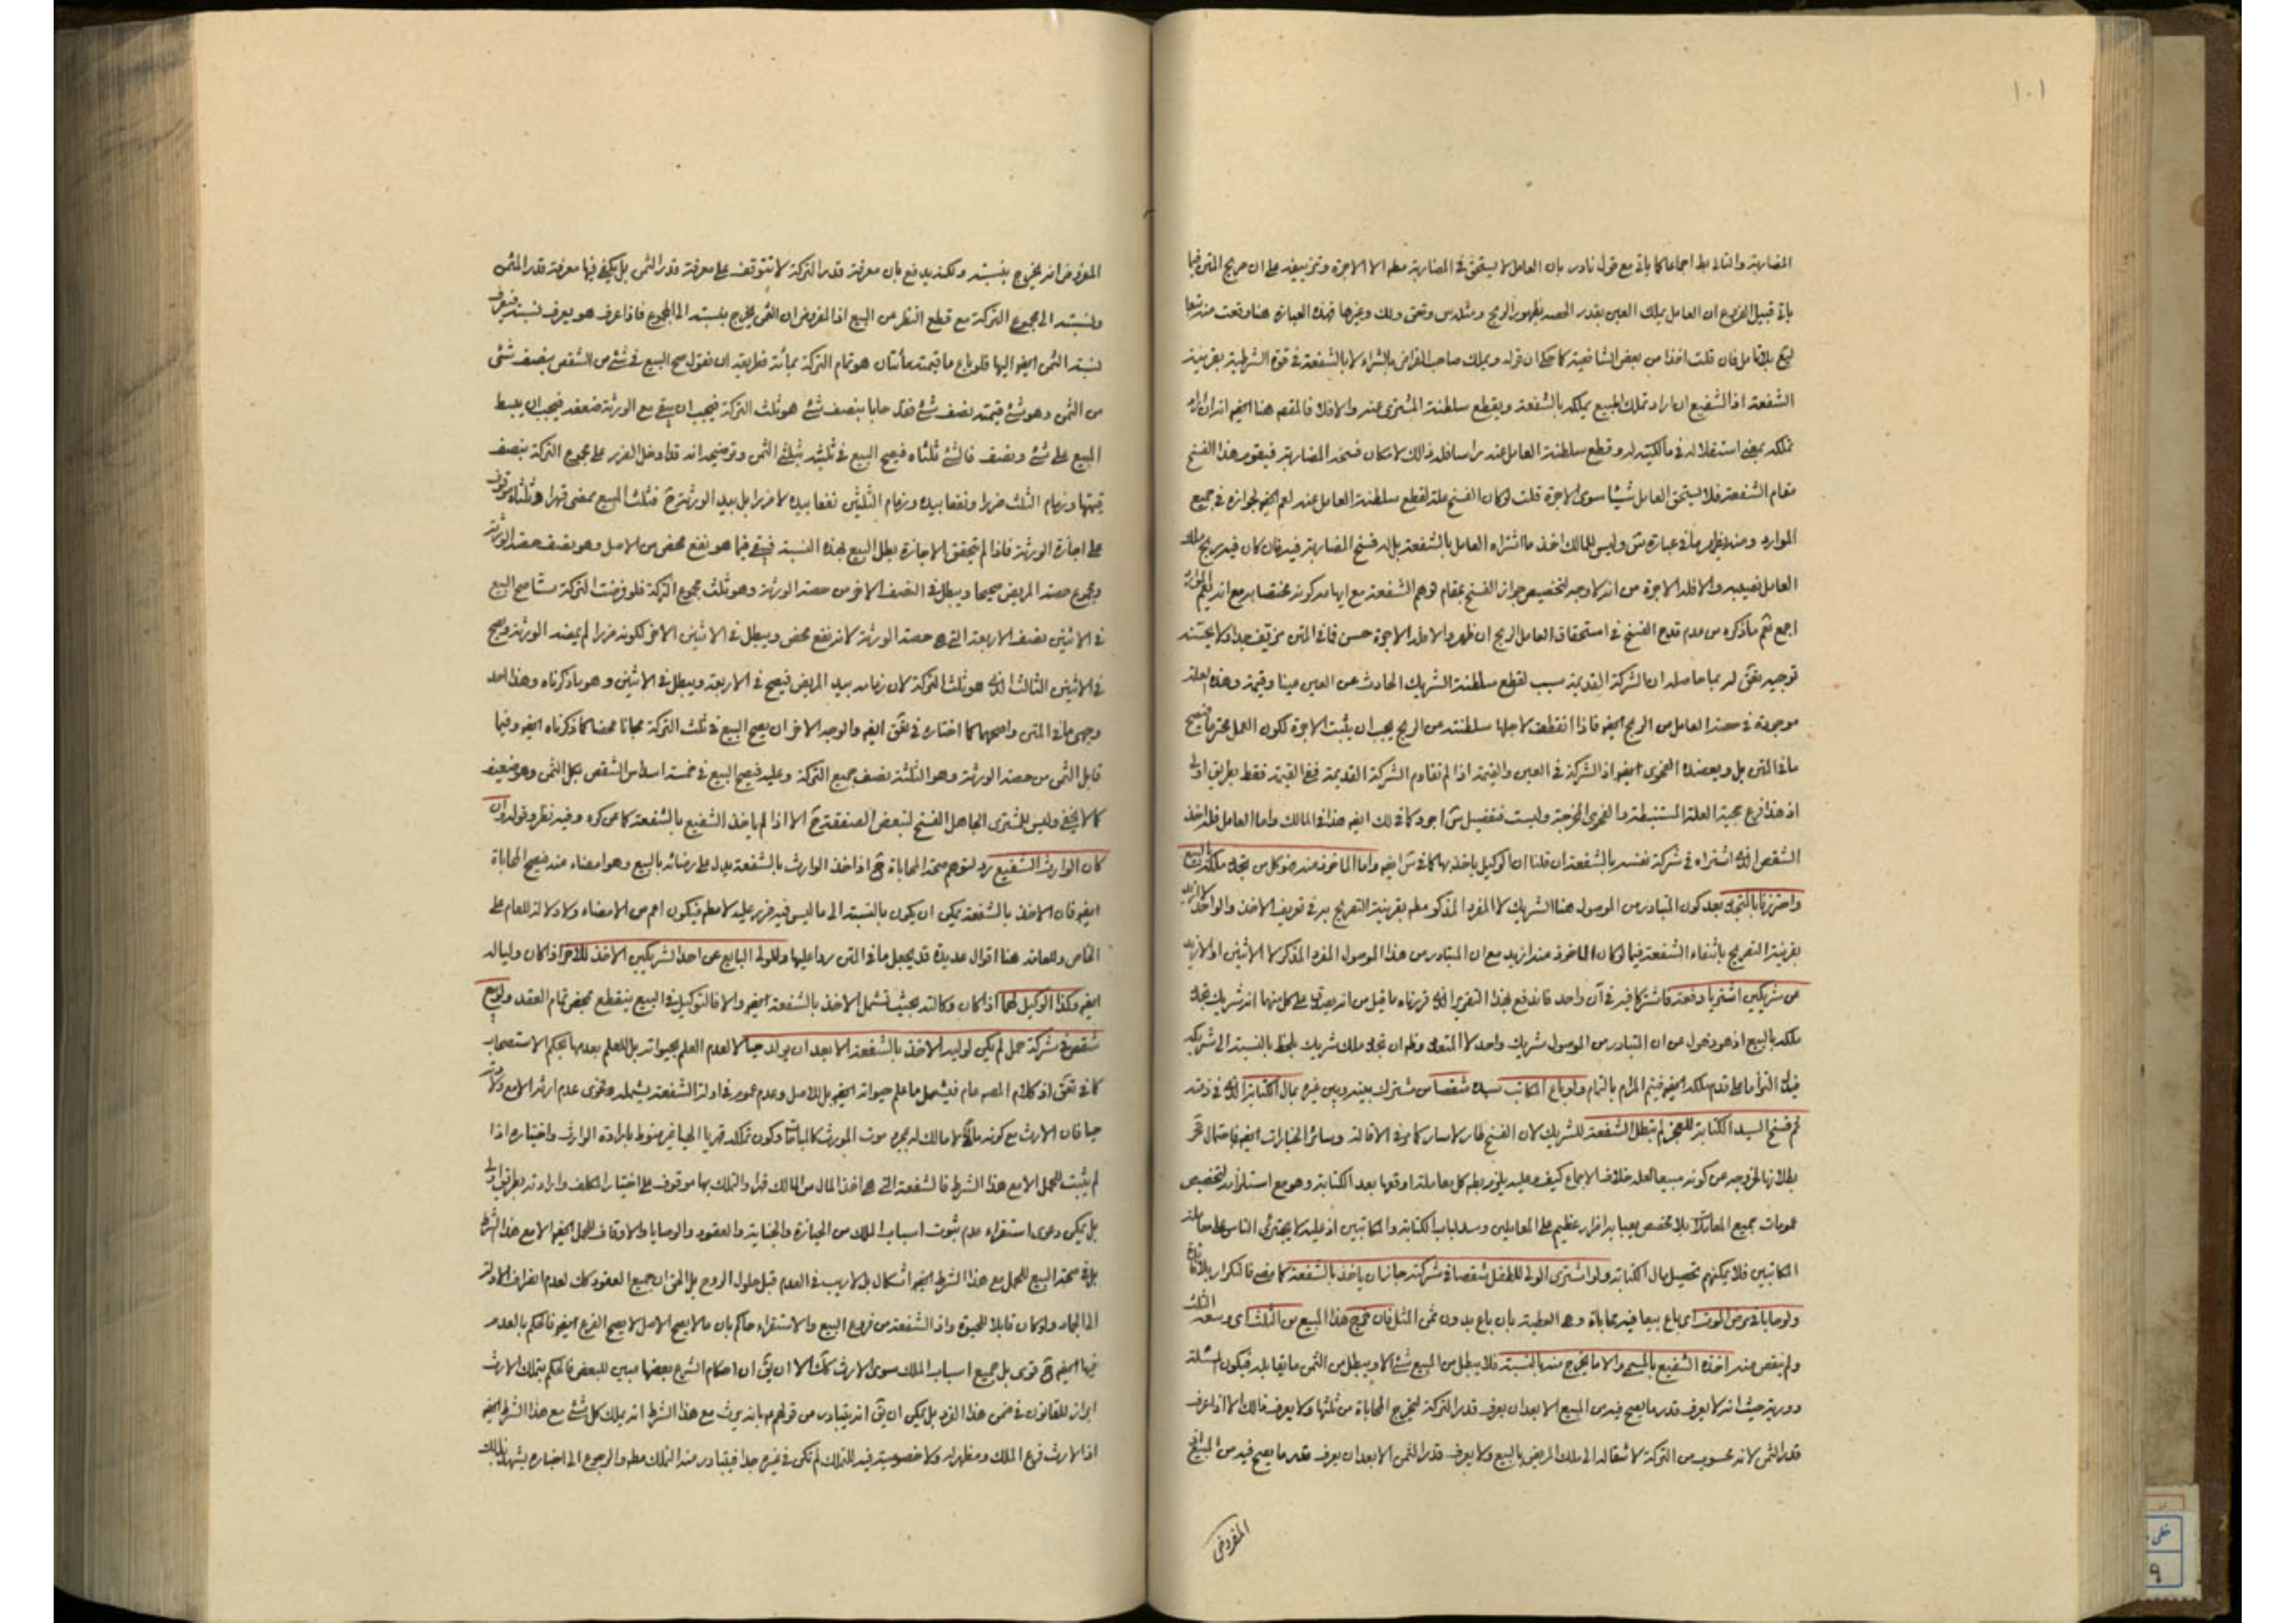 ١٠١
المضاربة والثانى بط اجماعا كما ياتى مع قول نادر بان العامل لا يستحق فى المضاربة مطم الا الاجرة وتزييفه على ان صريح المتن فيما
ياتى قبيل الفروع ان العامل يملك العين بقدر الحصه بظهور الربح ومثله س وتحق وذلك وغيرها فهذه العبارة هنا وقعت منه تبعا
لبتح بلا تامل فان قلت اخذا من بعض الشافعية كما حكى ان قوله ويملك صاحب القراض بالشراء لا بالشفعة فى قوة الشرطية بقرينة
الشفعة اذ الشفيع ان اراد تملك المبيع يملكه بالشفعة ويقطع سلطنة المشترى عنه والا فلا فالمقصم هنا ايضم انه ان اراد
تملكه بمعنى استقلاله فى مالكيته له وقطع سلطنة العامل عنه راسا فله ذالك لامكان فسخه المضاربة فيقوم هذا الفسخ
مقام الشفعة فلا يستحق العامل شيئا سوى الاجرة قلت لو كان الفسخ علة لقطع سلطنة العامل عنه لعم ايضم لجوازه فى جميع
الموارد ومنه يظهر ما فى عبارة ش وليس للمالك اخذ ما اشتراه العامل بالشفعة بل له فسخ المضاربة فيه فان كان فيه ربح ملك
العامل نصيبه والا فله الاجرة من انه لا وجه لتخصيص جواز الفسخ بمقام توهم الشفعة مع ايهامه كونه مختصا به مع انه ليعم الموارد
اجمع نعم ما ذكره من عدم قدح الفسخ فى استحقاق العامل الربح ان ظهر والا فله الاجرة حسن فما فى المتن مزيف جدا ولا يحسنه
توجيه بحق له بما حاصله ان الشركة القديمة سبب لقطع سلطنة الشريك الحادث عن العين عينا وقيمة وهذه العلة
موجودة فى حصة العامل من الربح ايضم فاذا انقطعت لاجلها سلطنته من الربح يجب ان يثبت الاجرة لكون العمل محترما فيصح
ما فى المتن بل ويعضده الفحوى ايضم اذ الشركة فى العين والقيمة اذا لم تقاوم الشركة القديمة ففى القيمة فقط بطريق اولى
اذ هذا فرع حجية العلة المستنبطة والفحوى المخرجة وليست فتفصيل ش اجود كما فى لك ايضم هذا فى المالك واما العامل فله اخذ
الشقص الذى اشتراه فى شركة نفسه بالشفعة ان قلنا ان الوكيل ياخذ بها كما فى ش ايضم واما الماخوذ منه فهو كل من تجدد ملكه بالبيع
واحترزنا بالتجدد بعد كون المتبادر من الموصول هنا الشريك لا المفرد المذكور مطم بقرينة التصريح به فى تعريف الاخذ والواحد لا ازيد
بقرينة التصريح بانتفاء الشفعة فيما لو كان الماخوذ منه ازيد مع ان المتبادر من هذا الموصول المفرد المذكر لا الاثنين او الازيد
من شريكين اشتريا دفعة فاشتركا فيه فى آن واحد فاندفع بهذا التقرير الذى قررناه ما قيل من انه يصدق على كل منهما انه شريك تجدد
ملكه بالبيع اذ هو ذهول من ان المتبادر من الموصول شريك واحد لا المتعدد وظم ان تجدد ملك شريك يلحظ بالنسبة الى شريكه
فيدل التزاما بط تقدم ملكه ايضم فيتم المرام بالتمام ولو باع المكاتب سيده شقصا من مشترك بينه وبين غيره بمال الكتابة الذى فى ذمته
ثم فسخ السيد الكتابة للعجز لم تبطل الشفعة للشريك لان الفسخ طار لا سار كما مر فى الاقالة وسائر الخيارات ايضم فاحتمال تحر
بطلانها لخروجه من كونه مبيعا لعله خلاف الاجماع كيف وعليه يلزم بطم كل معاملة اوقعها بعد الكتابة وهو مع استلزامه لتخصيص
عمومات جميع المعاملات بلا مخصص يعبا به اضرار عظيم على المعاملين وسد لباب الكتابة والمكاتبين اذ عليه لا يجترئ الناس على معاملة
المكاتبين فلا يمكنهم تحصيل مال الكتابة ولو اشترى الولى للطفل شقصا فى شركته جاز ان ياخذ بالشفعة كما مضى فالتكرار بلا فائدة
ولو حابا فى مرض الموت اى باع بيعا فيه محاباة وهى العطية بان باع بدون ثمن المثل فان خرج هذا المبيع من الثلث اى وسعه الثلث
ولم ينقص منه اخذه الشفيع بالمسمى والا ما يخرج منه بالنسبة فلا يبطل من المبيع شئ الا ويبطل من الثمن ما يقابله فيكون المسئلة
دورية حيث انه لا يعرف قدر ما يصح فيه من المبيع الا بعد ان يعرف قدر التركة لتخرج المحاباة من ثلثها ولا يعرف ذالك الا اذا عرف
قدر الثمن لانه محسوب من التركة لانتقاله الى ملك المريض بالبيع ولا يعرف قدر الثمن الا بعد ان يعرف قدر ما يصح فيه من المبيع اذ
المفروض
المفروض انه يخرج بنسبته ولكنه يدفع بان معرفة قدر التركة لا تتوقف على معرفة قدر الثمن بل يكفى فيها معرفة قدر المثمن
ونسبته الى مجموع التركة مع قطع النظر عن البيع اذ المفروض ان الثمن يخرج بنسبته الى المجموع فاذا عرف هو يعرف نسبته فيعرف
نسبة الثمن ايضم اليها فلو باع ما قيمته مأتان هو تمام التركة بمائة فطريقه ان نقول صح البيع فى شئ من الشقص بنصف شئ
من الثمن وهو شئ قيمته نصف شئ فقد حابا بنصف شئ هو ثلث التركة فيجب ان يبقى مع الورثة ضعفه فيجب ان يبسط
المبيع على شئ ونصف فالشئ ثلثاه فيصح البيع فى ثلثيه بثلثى الثمن وتوضيحه انه قد ادخل الضرر على مجموع التركة بنصف
قيمتها وزمام الثلث ضررا ونفعا بيده وزمام الثلثين نفعا بيده لا ضررا بل بيد الورثة ح فثلث المبيع ممضى قهرا وثلثاه موقوف
على اجازة الورثة فاذا لم يتحقق الاجازة بطل البيع بهذه النسبة فيبقى فيما هو نفع محض من الاصل وهو نصف حصة الورثة
ومجموع حصة المريض صحيحا ويبطل فى النصف الاخر من حصة الورثة وهو ثلث مجموع التركة فلو فرضت التركة ستا صح البيع
فى الاثنين نصف الاربعة التى هى حصة الورثة لانه نفع محض ويبطل فى الاثنين الاخر لكونه ضررا لم يمضه الورثة ويصح
فى الاثنين الثالث الذى هو ثلث التركة لان زمامه بيد المريض فيصح فى الاربعة ويبطل فى الاثنين وهو ما ذكرناه وهذا احد
وجهى ما فى المتن واصحهما كما اختاره فى تحق ايضم والوجه الاخر ان يصح البيع فى ثلث التركة مجانا محضا كما ذكرناه ايضم وفيما
قابل الثمن من حصة الورثة وهو الثلثة نصف جميع التركة وعليه فيصح البيع فى خمسة اسداس الشقص بكل الثمن وهو ضعيف
كما لا يخفى وليس للمشترى الجاهل الفسخ لتبعض الصفقة ح الا اذا لم ياخذ الشفيع بالشفعة كما عن كره وفيه نظر وقوله وان
كان الوارث الشفيع رد لتوهم صحة المحاباة ح اذ اخذ الوارث بالشفعة يدل على رضائه بالبيع وهو امضاء منه فيصح المحاباة
ايضم فان الاخذ بالشفعة يمكن ان يكون بالنسبة الى ما ليس فيه ضرر عليه لا مطم فيكون اعم من الامضاء ولا دلالة للعام على
الخاص وللعامة هنا اقوال عديدة قد يجعل ما فى المتن ردا عليها وللولى البايع عن احد الشريكين الاخذ للاخر اذا كان وليا له
ايضم وكذا الوكيل لهما اذا كان وكالته بحيث تشمل الاخذ بالشفعة ايضم والا فالتوكيل فى البيع ينقطع بمحض تمام العقد ولو بيع
شقص فى شركة حمل لم يكن لوليه الاخذ بالشفعة الا بعد ان يولد حيا لا لعدم العلم بحيوته بل للعلم بعدمها بحكم الاستصحاب
كما فى تحق اذ كلام المصم عام فيشمل ما علم حيوته ايضم بل للاصل وعدم عموم فى ادلة الشفعة يشمله وفحوى عدم ارثه الا مع ولادته
حيا فان الارث مع كونه مالا لا مالك له بمجرد موت المورث كالمباحات وكون تملكه قهريا الهيا غير منوط بارادة الوارث واختياره اذا
لم يثبت للحمل الا مع هذا الشرط فالشفعة التى هى اخذ المال من المالك قهرا والتملك بها موقوف على اختيار المكلف وارادته بطريق اولى
بل يمكن دعوى استقراء عدم ثبوت اسباب الملك من الحيازة والجناية والعقود والوصايا والاوقاف للحمل ايضم الا مع هذا الشرط
بل فى صحة البيع للحمل مع هذا الشرط ايضم اشكال بل لا ريب فى العدم قبل حلول الروح بل الحق ان جميع العقود كك لعدم انصراف الادلة
الى الجماد ولو كان قابلا للحيوة واذ الشفعة من فروع البيع والاستقراء حاكم بان ما لا يصح الاصل لا يصح الفرع ايضم فالحكم بالعدم
فيها ايضم ح قوى بل جميع اسباب الملك سوى الارث كك الا ان يق ان احكام الشرع بعضها مبين للبعض فالحكم بتملك الارث
ابراز للقانون فى ضمن هذا الفرد بل يمكن ان يق انه يتبادر من قولهم بانه يرث مع هذا الشرط انه يملك كل شئ مع هذا الشرط ايضم
اذ الارث فرع الملك ومظهر له ولا خصوصية فيه للتملك لم تكن فى غيره جدا فيتبادر منه التملك مطم والرجوع الى اخباره يشهد بذالك